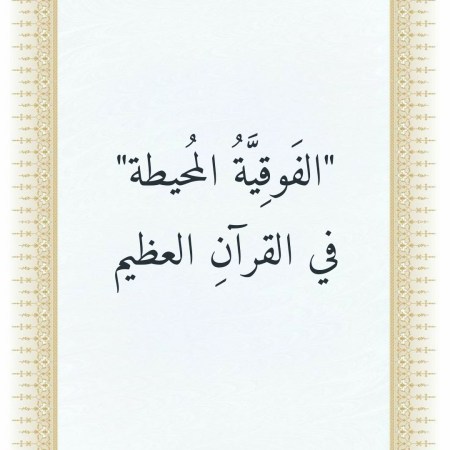 "الفَوقِيَّةُ المُحيطة"
في القرآنِ العظيم